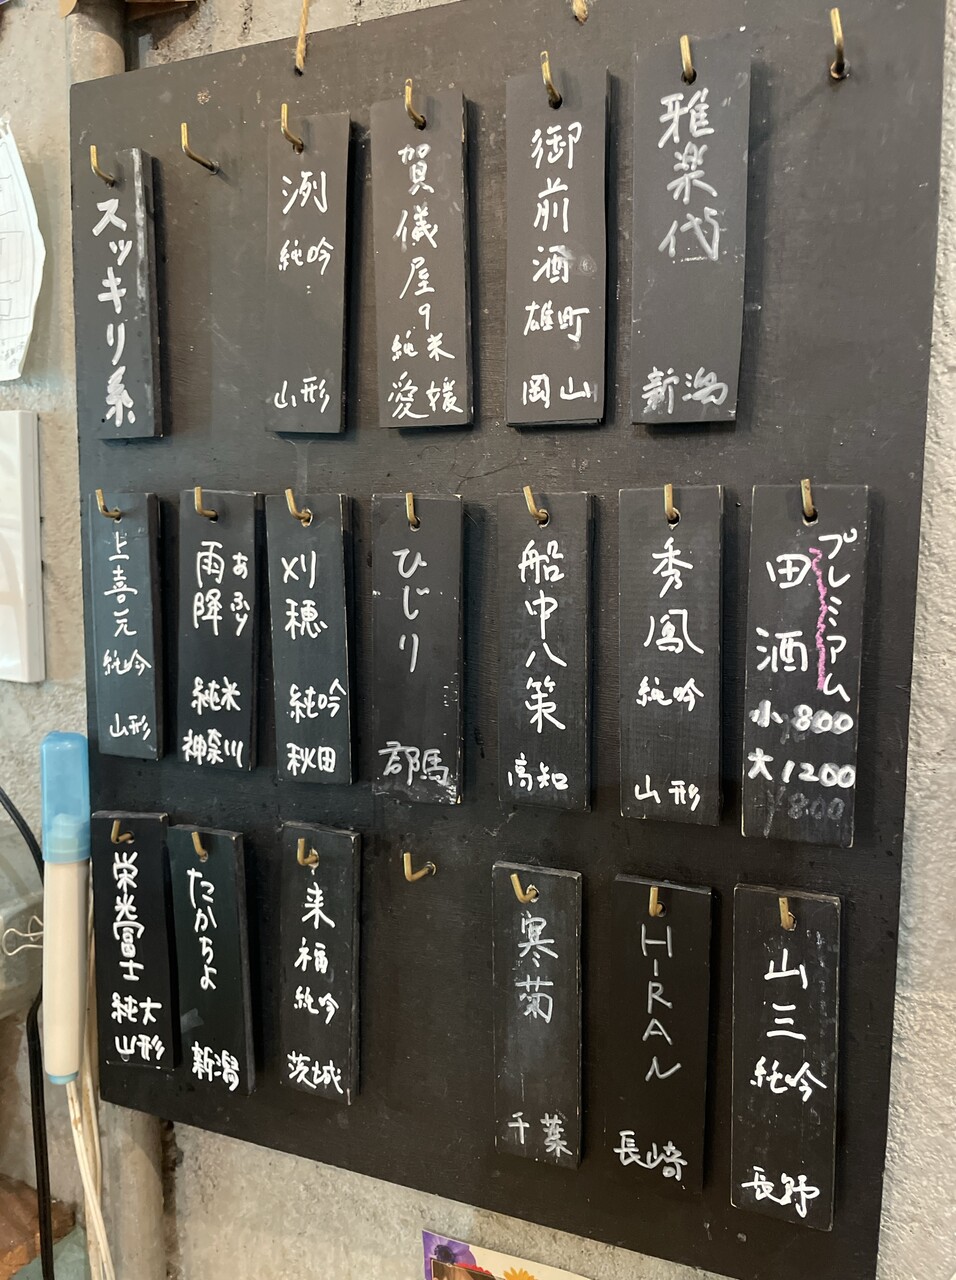 スッキリ系
洌
純吟
山形
賀儀屋
9
純米
愛媛
御前酒
雄町
岡山
雅楽代
新潟
上喜元
純吟
山形
雨降
あふり
純米
神奈川
刈穂
純吟
秋田
ひじり
郡馬
船中八策
高知
秀鳳
純吟
山形
プレミアム
田酒
小800
大1200
¥800
栄光冨士
純大
山形
たかちよ
新潟
来福
純吟
茨城
寒菊
千葉
HIRAN
長崎
山三
純吟
長野